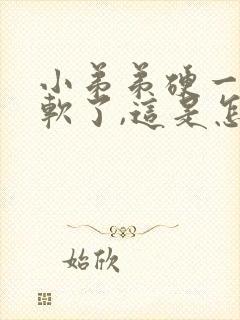 小弟弟硬一
軟了,這是怎
始欣